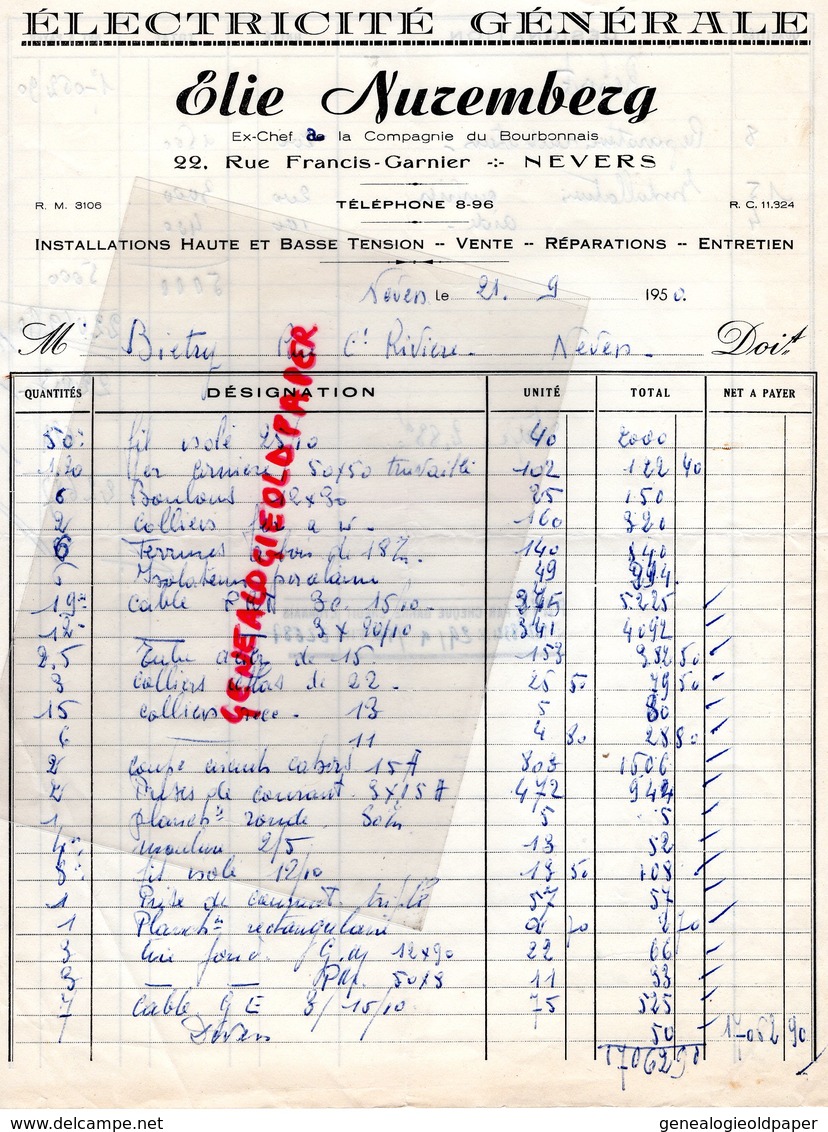 ÉLECTRICITÉ GÉNÉRALE
Elie Nuremberg
Ex-Chef à la Compagnie du Bourbonnais
22, Rue Francis-Garnier -:- NEVERS
R. M. 3106 TÉLÉPHONE 8-96 R. C. 11.324
INSTALLATIONS HAUTE ET BASSE TENSION -- VENTE -- RÉPARATIONS -- ENTRETIEN
Nevers le 21. 9 1950.
M. Bietry Rue Ct Rivière. Nevers. Doit
QUANTITÉS DÉSIGNATION UNITÉ TOTAL NET A PAYER
50 fil isolé 25/10 40 2000
1.20 fer cornière 50x50 travaillé 102 122 40
6 Boulons 12x30 25 150
2 colliers 160 320
6 Ferrures de 18 140 840
6 Isolateurs porcelaine 49
19m cable 3c. 15/10 5225
12m — 3 x 20/10 341 4092
2.5 Tube acier de 15. 153 382 50
3 colliers atlas de 22. 25 50 79 50
15 colliers 13 5 80
6 — 11 4 80 28 80
2 coupe circuits 15A 803 1606
2 Prises de courant 3x15A 472 944
1 Planchte ronde 5 5
4m moulure 2/5 13 52
8m fil isolé 12/10 13 50 108
1 Prise de courant triple 57 57
1 Planchte rectangulaire 2 70 2 70
3 12x90 22 66
3 — — 50x8 11 33
7 cable G E 3/15/10 75 525
Divers 50 17062 90
17062 90
GENEALOGIEOLDPAPER
genealogieoldpaper